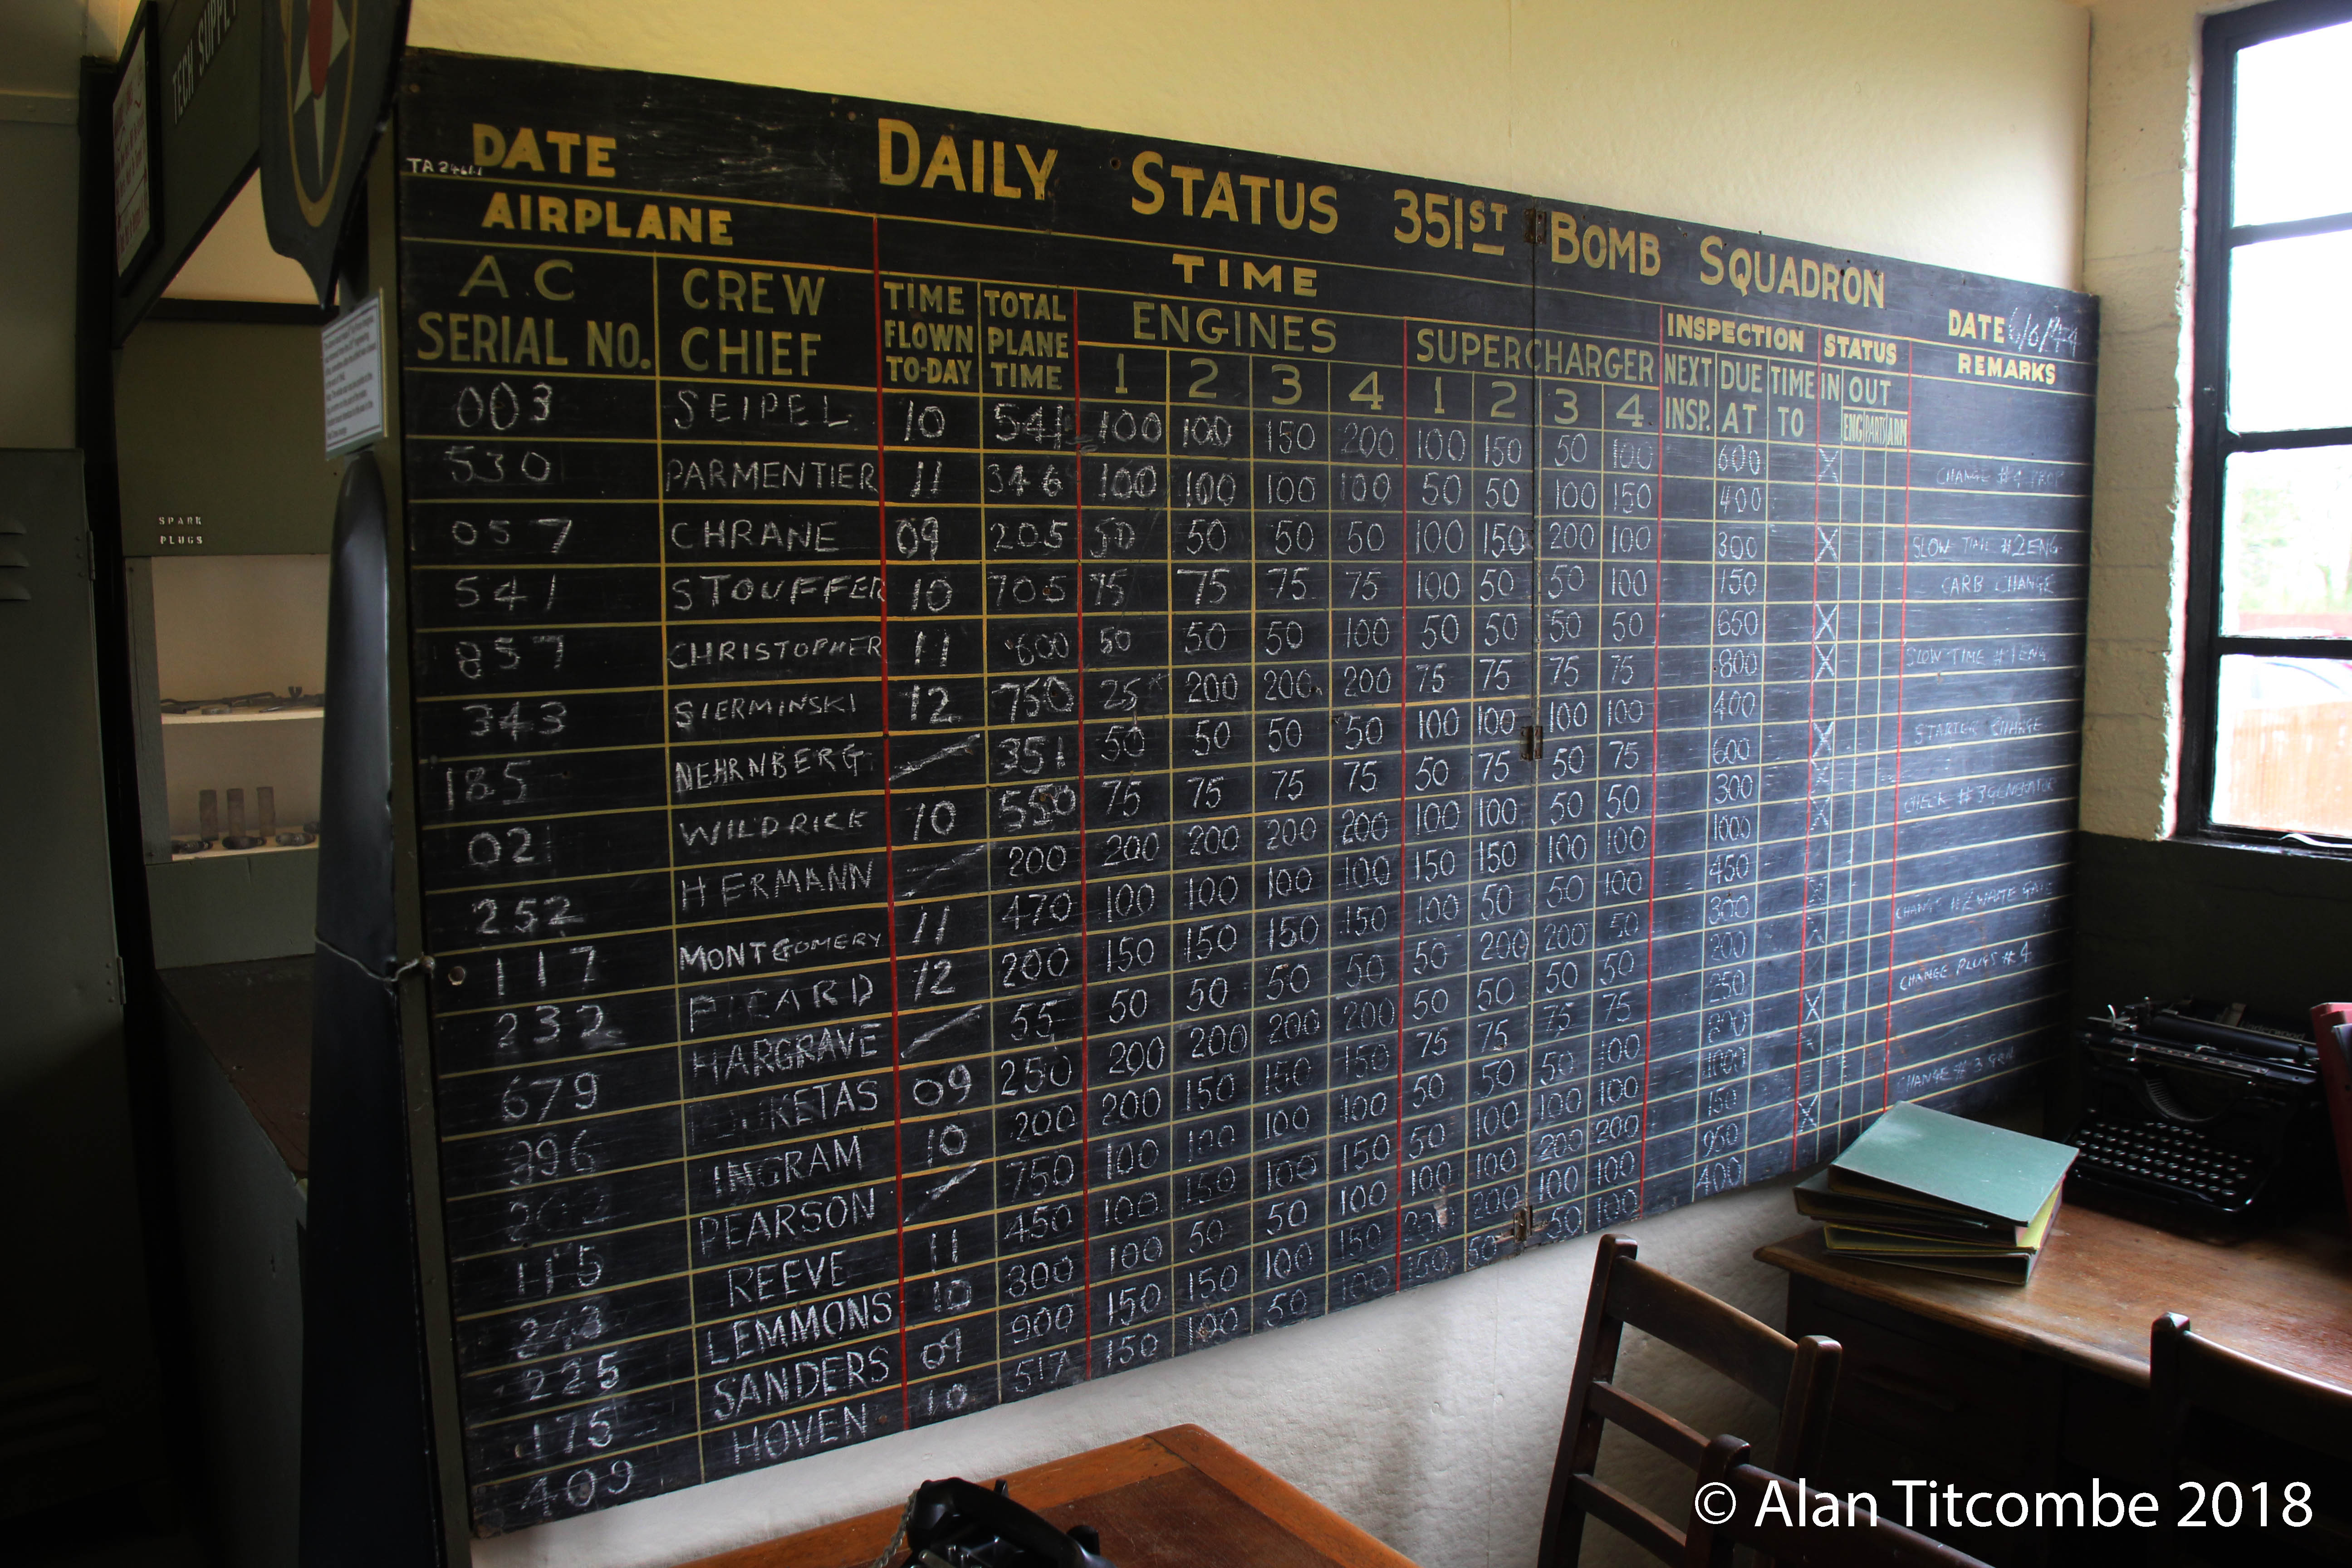 TECH SUPPLY
SPARK
PLUGS
TA 2461.1
DATE DAILY STATUS 351ST BOMB SQUADRON
AIRPLANE TIME INSPECTION STATUS DATE 6/6/44
A.C SERIAL NO. CREW CHIEF TIME FLOWN TO-DAY TOTAL PLANE TIME ENGINES SUPERCHARGER NEXT INSP. DUE AT TIME TO IN OUT REMARKS
1 2 3 4 1 2 3 4 ENG PARTS ARM
003 SEIPEL 10 541 100 100 150 200 100 150 50 100 600 X CHANGE #4 PROP
530 PARMENTIER 11 346 100 100 100 100 50 50 100 150 400
057 CHRANE 09 205 50 50 50 50 100 150 200 100 300 X SLOW TIME #2 ENG
541 STOUFFER 10 705 75 75 75 75 100 50 50 100 150 CARB CHANGE
857 CHRISTOPHER 11 600 50 50 50 100 50 50 50 50 650 X
343 SIERMINSKI 12 750 25 200 200 200 75 75 75 75 800 X SLOW TIME #1 ENG
185 NEHRNBERG / 351 50 50 50 50 100 100 100 100 400
021 WILDRICK 10 550 75 75 75 75 50 75 50 75 600 X STARTER CHANGE
252 HERMANN / 200 200 200 200 200 100 100 50 50 300 X
117 MONTGOMERY 11 470 100 100 100 100 150 150 100 100 1000 X CHECK #3 GENERATOR
232 PICARD 12 200 150 150 150 150 100 50 50 100 450
679 HARGRAVE / 55 50 50 50 50 50 200 200 50 300 X
396 09 250 200 200 200 200 50 50 50 50 200 X CHANGE #2 WASTE GATE
INGRAM 10 200 200 150 150 150 75 75 75 75 250
115 PEARSON / 750 100 100 100 100 50 50 50 100 200 X CHANGE PLUGS #4
REEVE 11 450 100 150 100 150 50 100 100 100 1000
225 LEMMONS 10 300 100 50 50 100 100 100 200 200 150
175 SANDERS 09 900 150 150 100 150 200 100 100 950 X CHANGE #3 GEN
409 HOVEN 10 517 150 100 50 100 50 50 50 100 400
© Alan Titcombe 2018